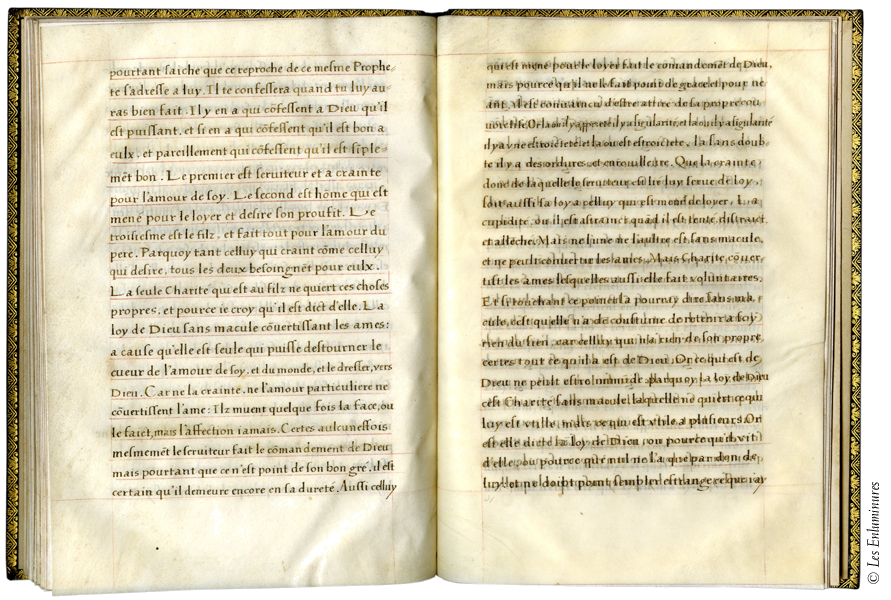 pourtant saiche que ce reproche de ce mesme Prophe-
te s'adresse a luy. Il te confessera quand tu luy au-
ras bien fait. Il y en a qui cõfessent a Dieu qu'il
est puissant, et si en a qui cõfessent qu'il est bon a
eulx, et pareillement qui cõfessent qu'il est siple-
mẽt bon. Le premier est seruiteur et a crainte
pour l'amour de soy. Le second est hõme qui est
mené pour le loyer et desire son proufit. Le
troisiesme est le filz, et fait tout pour l'amour du
pere. Parquoy tant celluy qui craint cõme celluy
qui desire, tous les deux besoingnẽt pour eulx.
La seule Charité qui est au filz ne quiert ces choses
propres, et pource ie croy qu'il est dict d'elle. La
loy de Dieu sans macule cõuertissant les ames:
a cause qu'elle est seule qui puisse destourner le
cueur de l'amour de soy, et du monde, et le dresser vers
Dieu. Car ne la crainte, ne l'amour particuliere ne
cõuertissent l'ame: Ilz muent quelque fois la face, ou
le faict, mais l'affection iamais. Certes aulcunesfois
mesmemẽt le seruiteur fait le cõmandement de Dieu
mais pourtant que ce n'est point de son bon gré, il est
certain qu'il demeure encore en sa dureté. Aussi celluy
qui est mené pour le loyer fait le cõmandemẽt de Dieu,
mais pource qu'il ne le fait point de grace et pour ne-
ant, il est conuaincu d'estre attire de sa propre cou-
il y a et la ou est la sans doub-
te il y a des ordures et Que la crainte
donc de laquelle le seruiteur est lié luy serue de loy,
soit aussi sa loy a celluy qui est mené de loyer, La
cupidité, ou il est astrainct quãd il est tenté, distraict,
et alleché. Mais ne l'une ne l'aultre est sans macule,
et ne peult conuertir les ames. Mais Charité cõuer-
tist les ames lesquelles aussi elle fait voluntaires.
Et si touchant ce point la pourroy dire sans ma-
cule, c'est qu'elle n'a de coustume de retenir a soy
rien du sien, car celluy qui n'a rien de son propre
certes tout ce qu'il a est de Dieu. Or ce qui est de
Dieu ne peult estre immunde parquoy la loy de Dieu
c'est Charité sans macule laquelle ne quiert ce qui
luy est vtile, mais ce qui est vtile a plusieurs. Or
est elle dicte la loy de Dieu, ou pource qu'il vit
d'elle, ou pource que nul ne l'a que par don de
luy, et ne doipt point sembler estrange ce que i'ay
© Les Enluminures